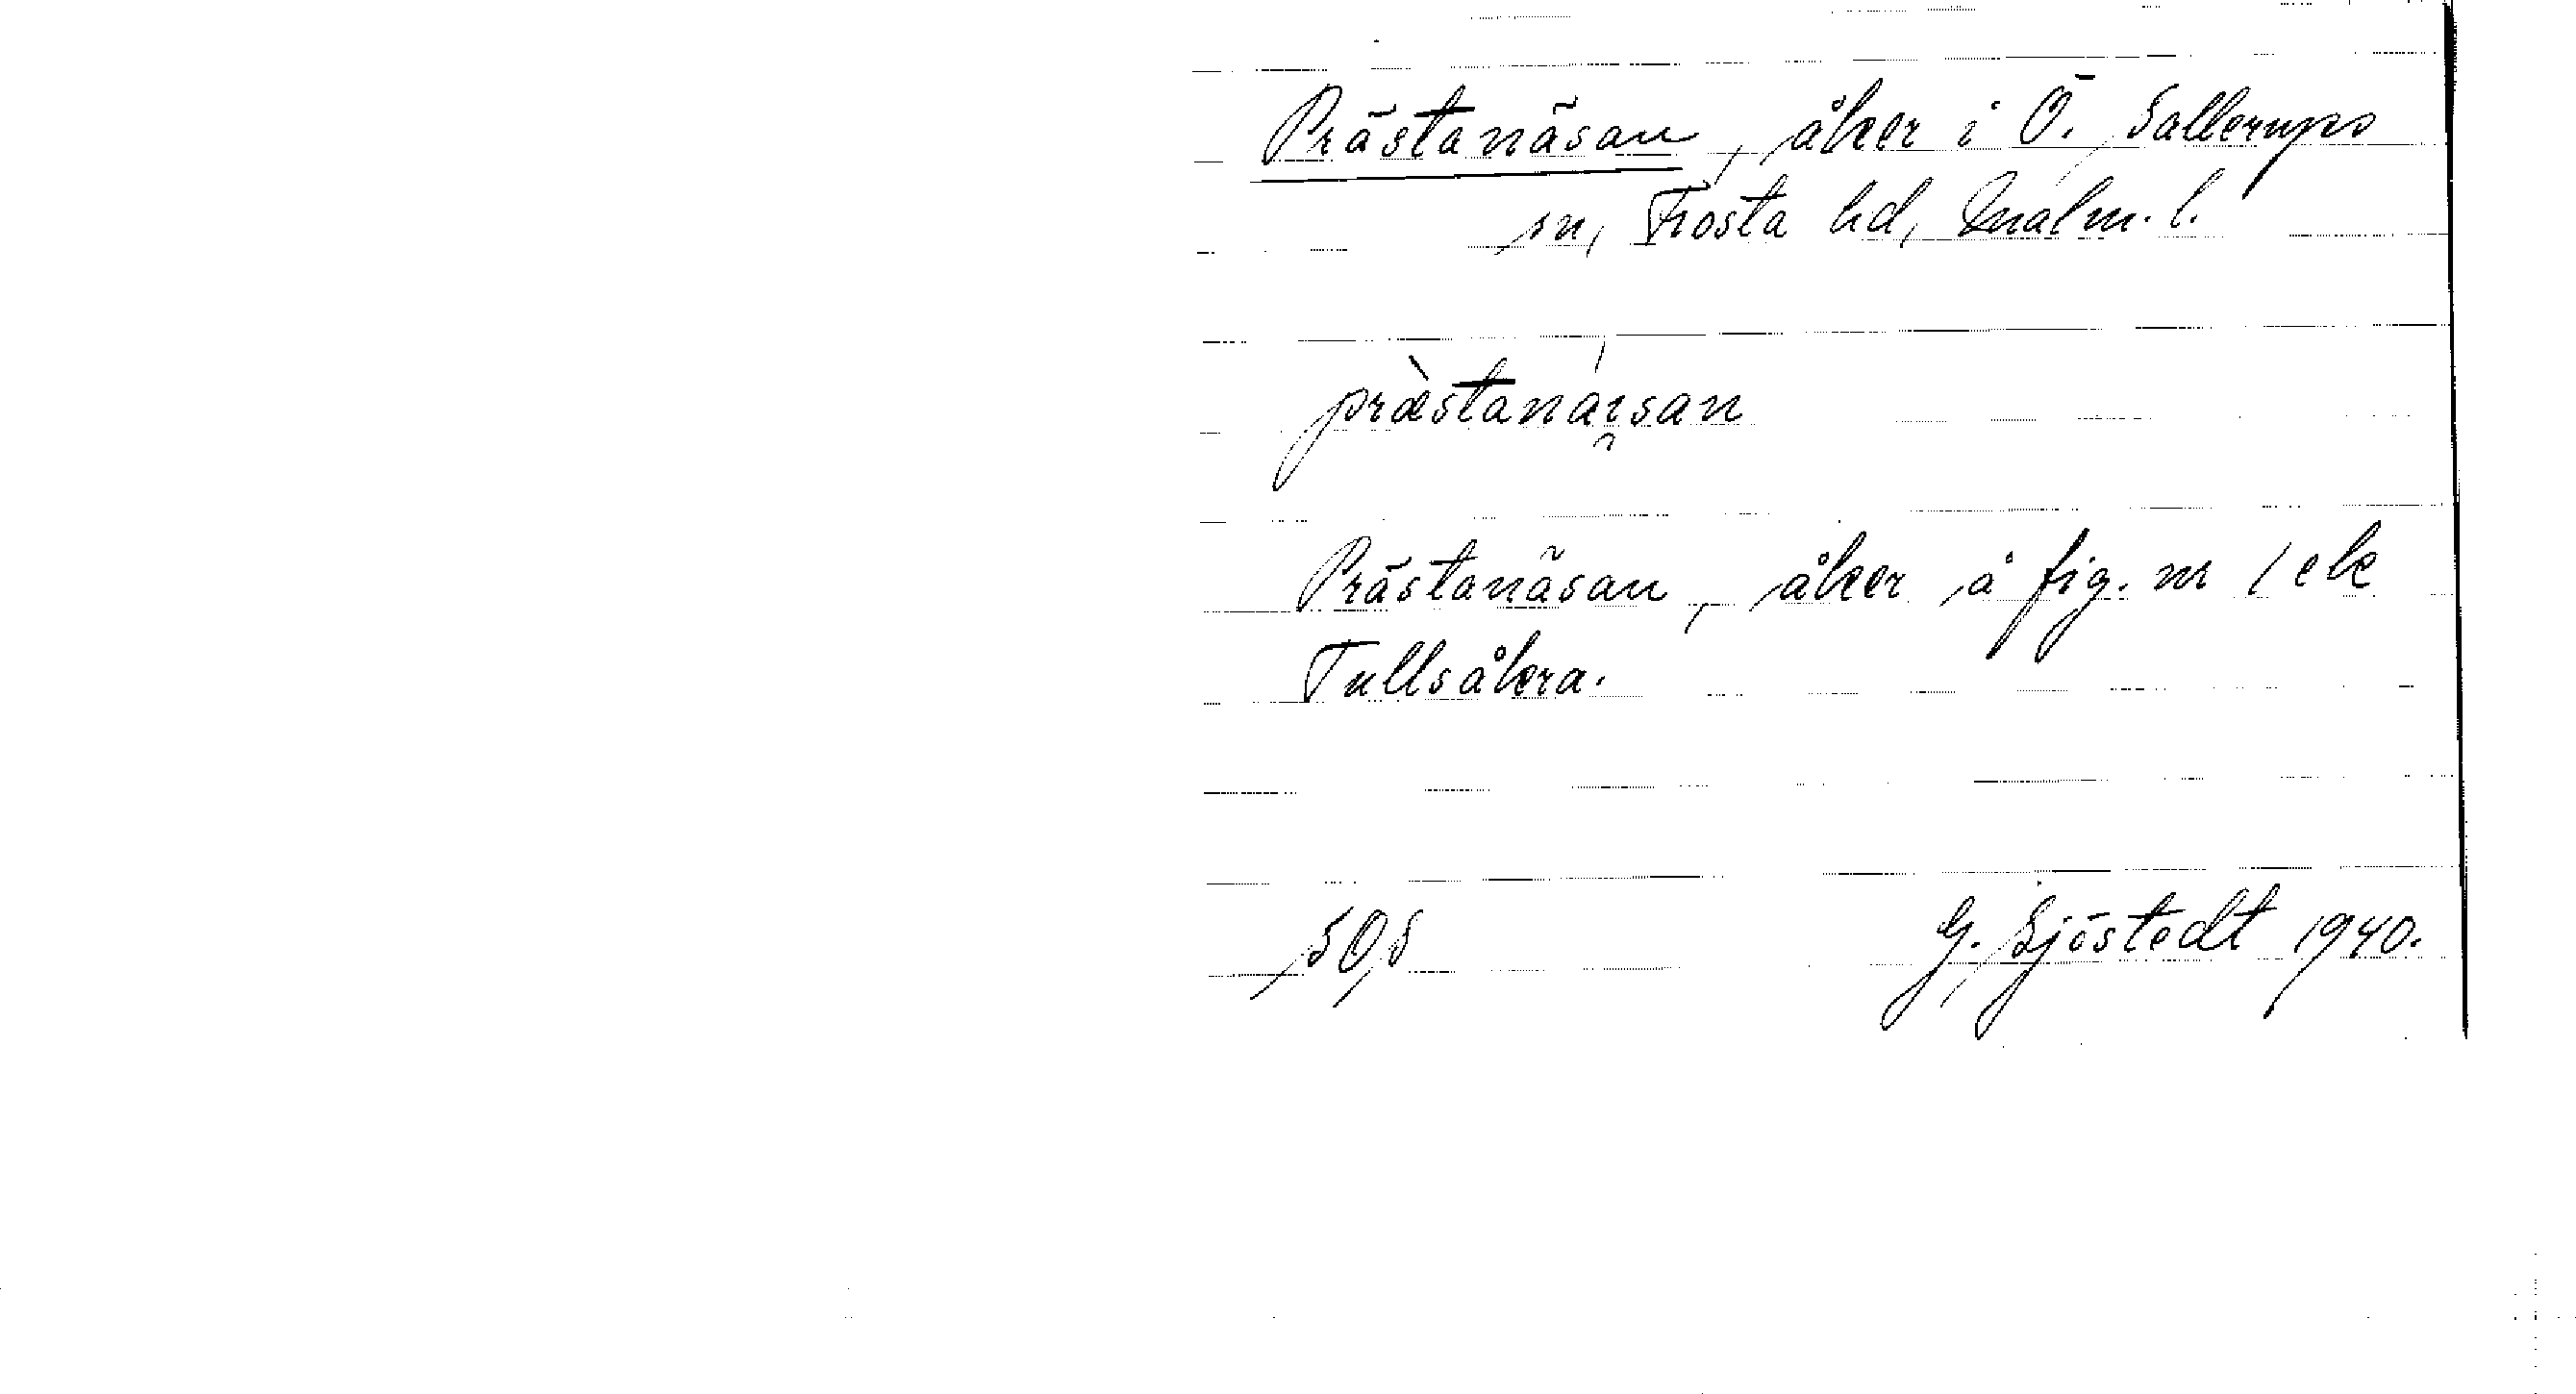 Prästanäsan, åker i Ö. Sallerups
sn, Frosta hd, Malm. l.
præ̀stanáisan
Prästanäsan, åker å fig. nr 1 ek
Tullsåkra.
508 G. Sjöstedt 1940.